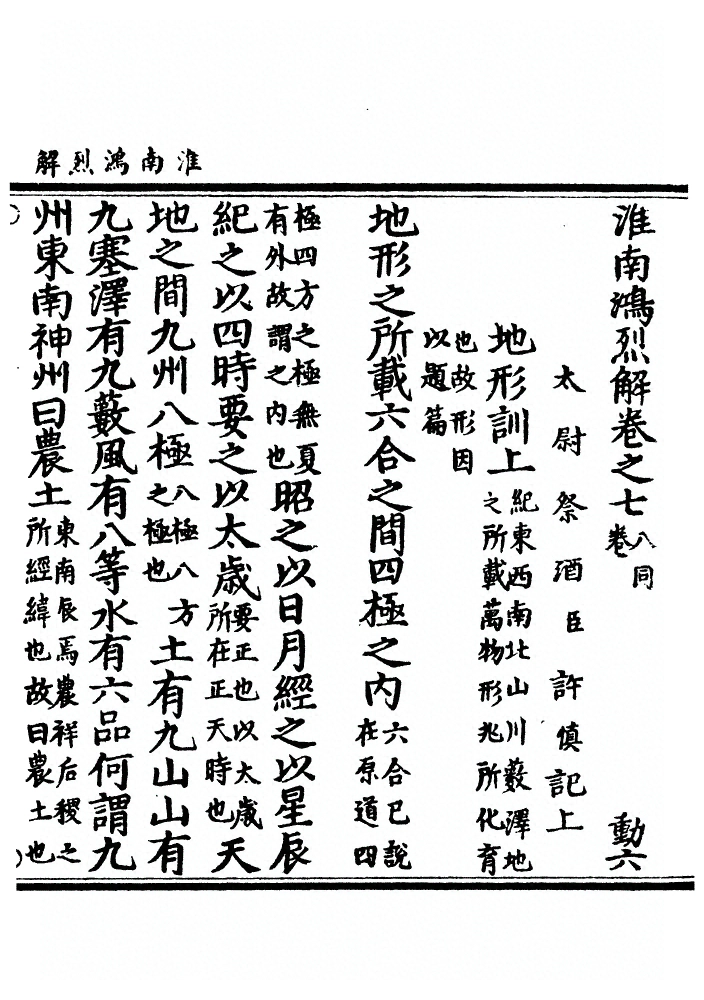 淮南鴻烈解
淮南鴻烈解卷之七八同卷 動六
太尉祭酒臣許慎記上
地形訓上紀東西南北山川藪澤地之所載萬物形兆所化育
也故形因以題篇
地形之所載六合之間四極之內六合已說在原道四
極四方之極無夏有外故謂之內也昭之以日月經之以星辰
紀之以四時要之以太歲要正也以太歲所在正天時也天
地之間九州八極八極八方之極也土有九山山有
九塞澤有九藪風有八等水有六品何謂九
州東南神州曰農土東南辰爲農祥后稷之所經緯也故曰農土也